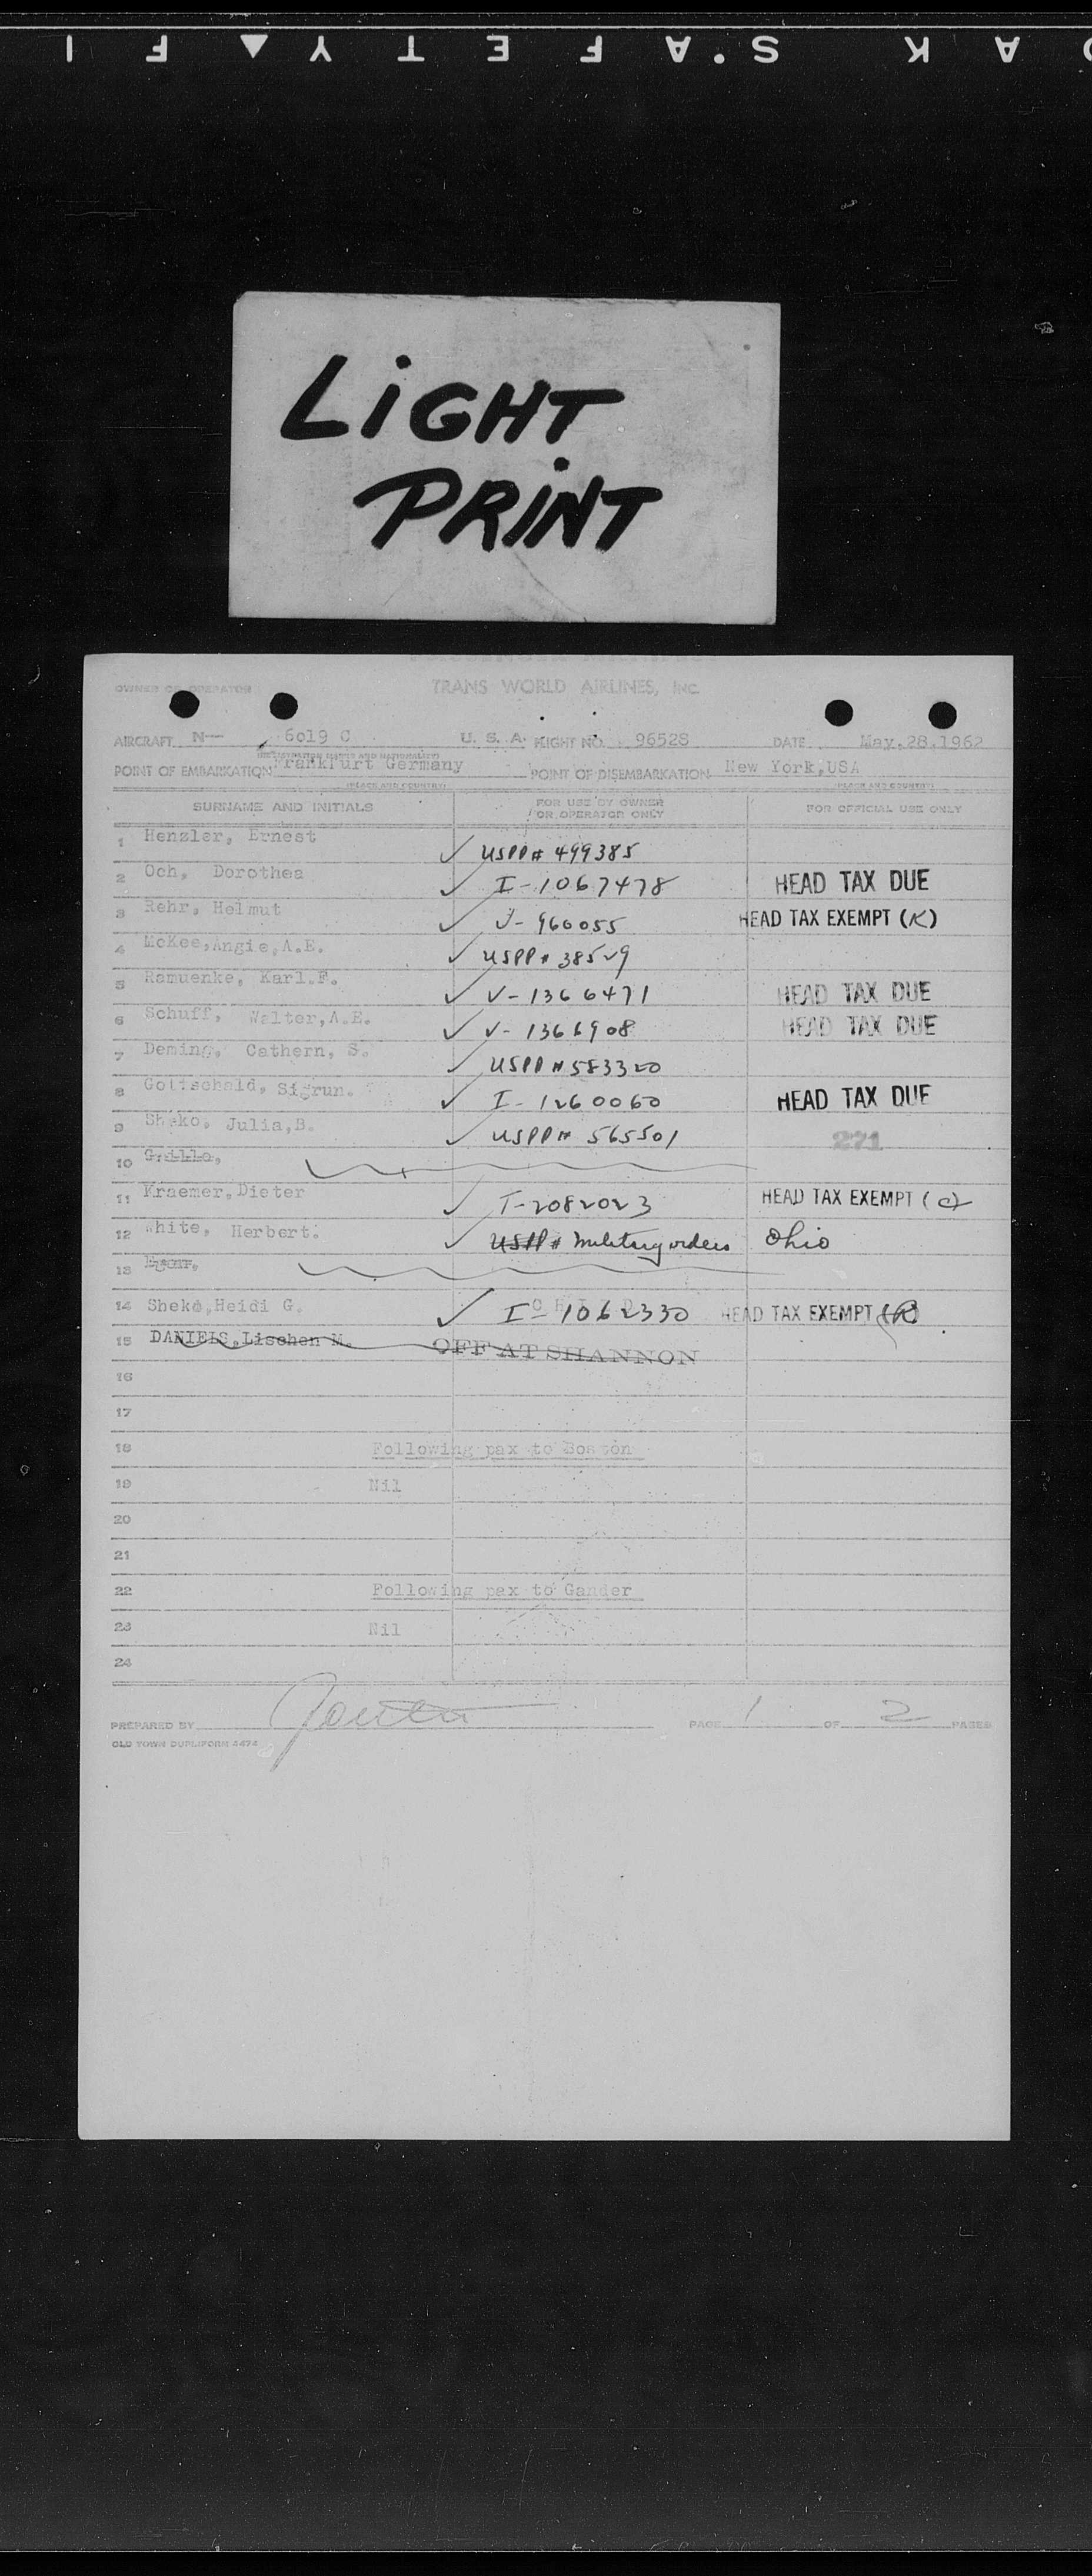 SAFETY FI
LIGHT
PRINT
PASSENGER MANIFEST
OWNER OR OPERATOR TRANS WORLD AIRLINES, INC.
AIRCRAFT N-- 6019 C U. S. A. FLIGHT NO. 96528 DATE May,28,1962
(REGISTRATION MARKS AND NATIONALITY)
POINT OF EMBARKATION Frankfurt Germany POINT OF DISEMBARKATION New York,USA
(PLACE AND COUNTRY) (PLACE AND COUNTRY)
SURNAME AND INITIALS FOR USE BY OWNER OR OPERATOR ONLY FOR OFFICIAL USE ONLY
1 Henzler, Ernest ✓ USPP# 499385
2 Och, Dorothea ✓ I-1067478 HEAD TAX DUE
3 Rehr, Helmut ✓ V-960055 HEAD TAX EXEMPT (K)
4 McKee,Angie,A.E. ✓ USPP# 38529
5 Ramuenke, Karl.F. ✓ V-1366471 HEAD TAX DUE
6 Schuff, Walter,A.E. ✓ V-1366908 HEAD TAX DUE
7 Deming, Cathern, S. ✓ USPP# 583320
8 Gottschald, Sigrun. ✓ I-1260060 HEAD TAX DUE
9 Sheko, Julia,B. ✓ USPP# 565501 271
10 Grillo,
11 Kraemer,Dieter ✓ I-2082023 HEAD TAX EXEMPT (C)
12 White, Herbert. ✓ USPP# Military orders Ohio
13
14 Sheko,Heidi G. ✓ I-1062330 HEAD TAX EXEMPT (R)
15 DANIELS,Lischen M. OFF AT SHANNON
16
17
18 Following pax to Boston
19 Nil
20
21
22 Following pax to Gander
23 Nil
24
PREPARED BY PAGE 1 OF 2 PAGES
OLD TOWN DUPLIFORM 4474